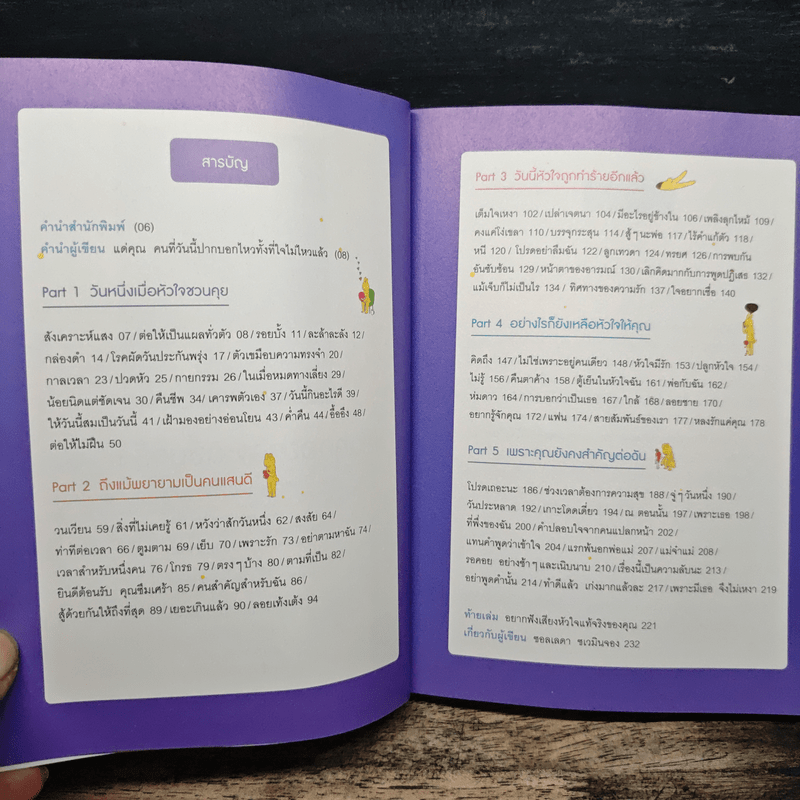 สารบัญ
คำนำสำนักพิมพ์ (06)
คำนำผู้เขียน แด่คุณ คนที่วันนี้ปากบอกไหวทั้งที่ใจไม่ไหวแล้ว (08)
Part 1 วันหนึ่งเมื่อหัวใจชวนคุย
สังเคราะห์แสง 07/ต่อให้เป็นแผลทั่วตัว 08/รอยบั้ง 11/ละล้าละลัง 12/
กล่องดำ 14/โรคผัดวันประกันพรุ่ง 17/ตัวเขมือบความทรงจำ 20/
กาลเวลา 23/ปวดหัว 25/กายกรรม 26/ในเมื่อหมดทางเลี่ยง 29/
น้อยนิดแต่ชัดเจน 30/คืนชีพ 34/เคารพตัวเอง 37/วันนี้กินอะไรดี 39/
ให้วันนี้สมเป็นวันนี้ 41/เฝ้ามองอย่างอ่อนโยน 43/ค่ำคืน 44/อื้ออึง 48/
ต่อให้ไม่ฝืน 50
Part 2 ถึงแม้พยายามเป็นคนแสนดี
วนเวียน 59/สิ่งที่ไม่เคยรู้ 61/หวังว่าสักวันหนึ่ง 62/สงสัย 64/
ท่าทีต่อเวลา 66/ตูมตาม 69/เย็บ 70/เพราะรัก 73/อย่าตามหาฉัน 74/
เวลาสำหรับหนึ่งคน 76/โกรธ 79/ตรงๆบ้าง 80/ตามที่เป็น 82/
ยินดีต้อนรับ คุณซึมเศร้า 85/คนสำคัญสำหรับฉัน 86/
สู้ด้วยกันให้ถึงที่สุด 89/เยอะเกินแล้ว 90/ลอยเท้งเต้ง 94
Part 3 วันนี้หัวใจถูกทำร้ายอีกแล้ว
เต็มใจเหงา 102/เปล่าเจตนา 104/มีอะไรอยู่ข้างใน 106/เพลิงลุกไหม้ 109/
คงแค่โง่เขลา 110/บรรจุกระสุน 114/สู้ๆนะพ่อ 117/ไร้คำแก้ตัว 118/
หนี 120/โปรดอย่าลืมฉัน 122/ลูกเทวดา 124/ทรยศ 126/การพบกัน
อันซับซ้อน 129/หน้าตาของอารมณ์ 130/เลิกคิดมากกับการพูดปฏิเสธ 132/
แม้เจ็บก็ไม่เป็นไร 134/ทิศทางของความรัก 137/ใจอยากเชื่อ 140
Part 4 อย่างไรก็ยังเหลือหัวใจให้คุณ
คิดถึง 147/ไม่ใช่เพราะอยู่คนเดียว 148/หัวใจมีรัก 153/ปลูกหัวใจ 154/
ไม่รู้ 156/คืนตาค้าง 158/ตู้เย็นในหัวใจฉัน 161/พ่อกับฉัน 162/
ห่มดาว 164/การบอกว่าเป็นเธอ 167/ใกล้ 168/ลอยชาย 170/
อยากรู้จักคุณ 172/แฟน 174/สายสัมพันธ์ของเรา 177/หลงรักแค่คุณ 178
Part 5 เพราะคุณยังคงสำคัญต่อฉัน
โปรดเถอะนะ 186/ช่วงเวลาต้องการความสุข 188/จู่ๆวันหนึ่ง 190/
วันประหลาด 192/เกาะโดดเดี่ยว 194/ณ ตอนนั้น 197/เพราะเธอ 198/
ที่พึ่งของฉัน 200/คำปลอบใจจากคนแปลกหน้า 202/
แทนคำพูดว่าเข้าใจ 204/แรกพ้นอกพ่อแม่ 207/แม่จ๋าแม่ 208/
รอคอย อย่างช้าๆและเนิบนาบ 210/เรื่องนี้เป็นความลับนะ 213/
อย่าพูดคำนั้น 214/ทำดีแล้ว เก่งมากแล้วละ 217/เพราะมีเธอ จึงไม่เหงา 219
ท้ายเล่ม อยากฟังเสียงหัวใจแท้จริงของคุณ 221
เกี่ยวกับผู้เขียน ซอลเลดา ชเวมินจอง 232